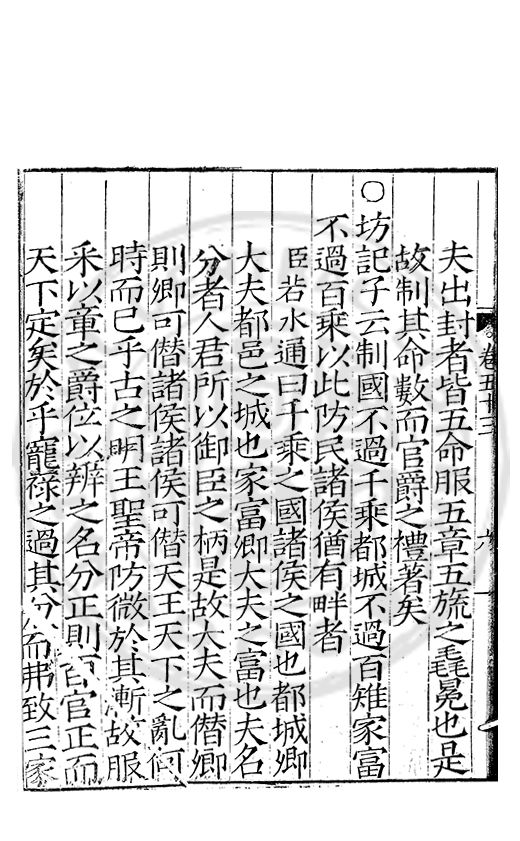 夫出封者皆五命服五章五旒之毳冕也是
故制其命數而官爵之禮著矣
○坊記子云制國不過千乘都城不過百雉家富
不過百乘以此防民諸侯猶有畔者
臣若水通曰千乘之國諸侯之國也都城卿
大夫都邑之城也家富卿大夫之富也夫名
分者人君所以御臣之柄是故大夫而僣卿
則卿可僣諸侯諸侯可僣天王天下之亂何
時而已乎古之明王聖帝防微於其漸故服
采以章之爵位以辨之名分正則百官正而
天下定矣於乎寵祿之過其分而弗致三家
卷五十三